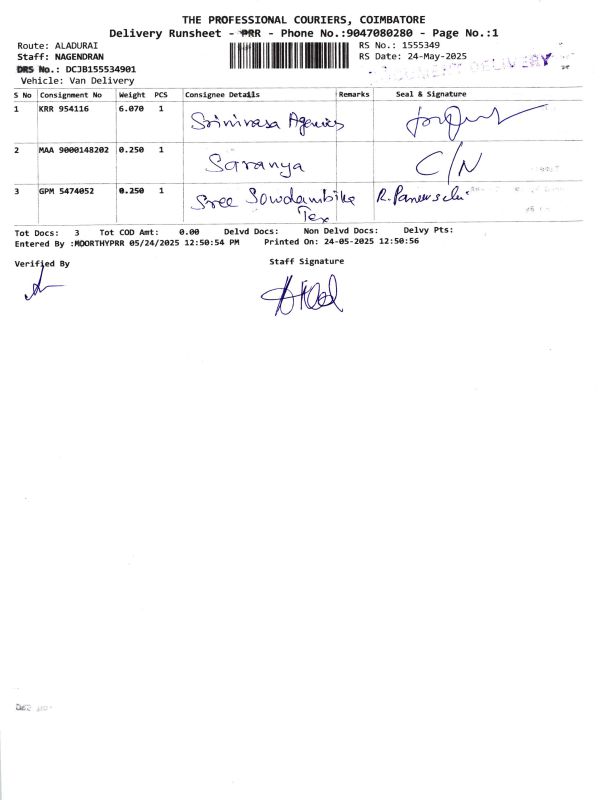 THE PROFESSIONAL COURIERS, COIMBATORE
Delivery Runsheet - PRR - Phone No.:9047080280 - Page No.:1
Route: ALADURAI
RS No.: 1555349
Staff: NAGENDRAN
RS Date: 24-May-2025
DRS No.: DCJB155534901
DOCUMENT DELIVERY
Vehicle: Van Delivery
S No Consignment No Weight PCS Consignee Details Remarks Seal & Signature
1 KRR 954116 6.070 1 Srinivasa Agencies
2 MAA 9000148202 0.250 1 Saranya C/N
3 GPM 5474052 0.250 1 Sree Sowdambika
Tex
Tot Docs: 3 Tot COD Amt: 0.00 Delvd Docs: Non Delvd Docs: Delvy Pts:
Entered By :MOORTHYPRR 05/24/2025 12:50:54 PM Printed On: 24-05-2025 12:50:56
Verified By Staff Signature